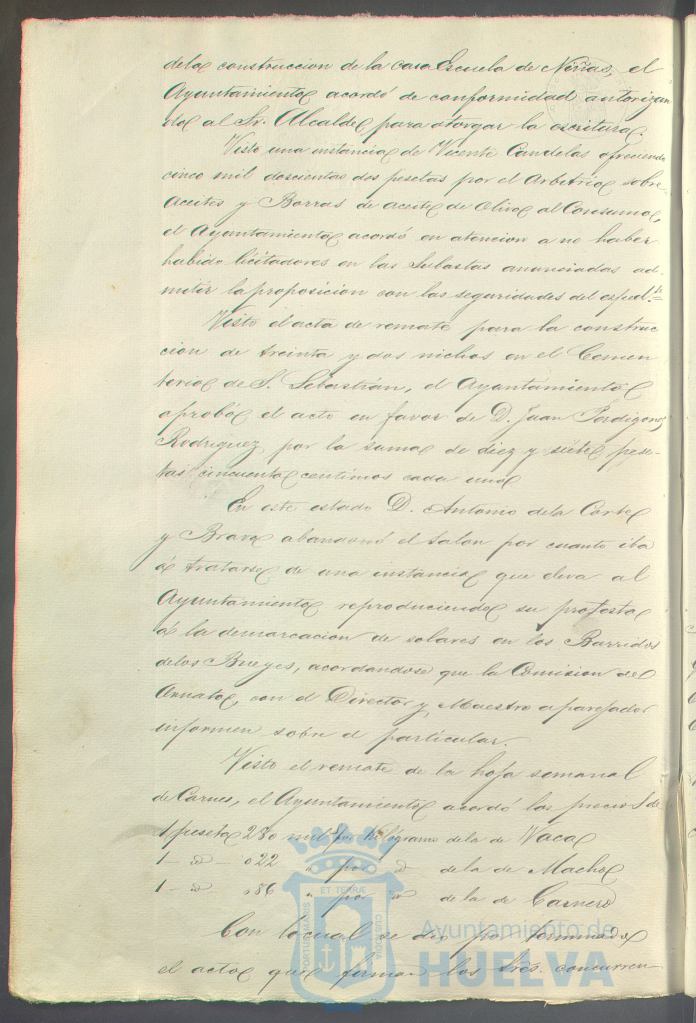 dela construccion de la casa Escuela de Niñas, el
Ayuntamiento acordó de conformidad autorizan
do al Sr. Alcalde para otorgar la escritura.
Vista una instancia de Vicente Candelas ofreciendo
cinco mil doscientas dos pesetas por el Arbitrio sobre
Aceites y Borras de aceite de Oliva al Consumo,
el Ayuntamiento acordó en atencion a no haber
habido licitadores en las Subastas anunciadas ad-
mitir la proposicion con las seguridades del exped.te
Visto el acta de remate para la construc
cion de treinta y dos nichos en el Cemen
terio de S. Sebastián, el Ayuntamiento
aprobó el acto en favor de D. Juan Perdigones
Rodriguez por la suma de diez y siete pese-
tas cincuenta centimos cada uno
En este estado D. Antonio dela Corte
y Bravo abandonó el Salon por cuanto iba
á tratarse de una instancia que eleva al
Ayuntamiento reproduciendo su protesta
á la demarcacion de solares en los
delos Bueyes, acordandose que la Comision de
Ornato, con el Director y Maestro aparejador
informen sobre el particular.
Visto el remate de la hoja semanal
de Carnes, el Ayuntamiento acordó los precios de
1 peseta 280 mil por Kilógramo dela de Vaca
1 - id - 022 " por id dela de Macho
1 - id 086 " por id dela de Carnero
Con lo cual se dio por terminado
el acto que firman los Sres. concurren-
PORTUS MARIS ET TERRÆ CUSTODIA
Ayuntamiento de
HUELVA